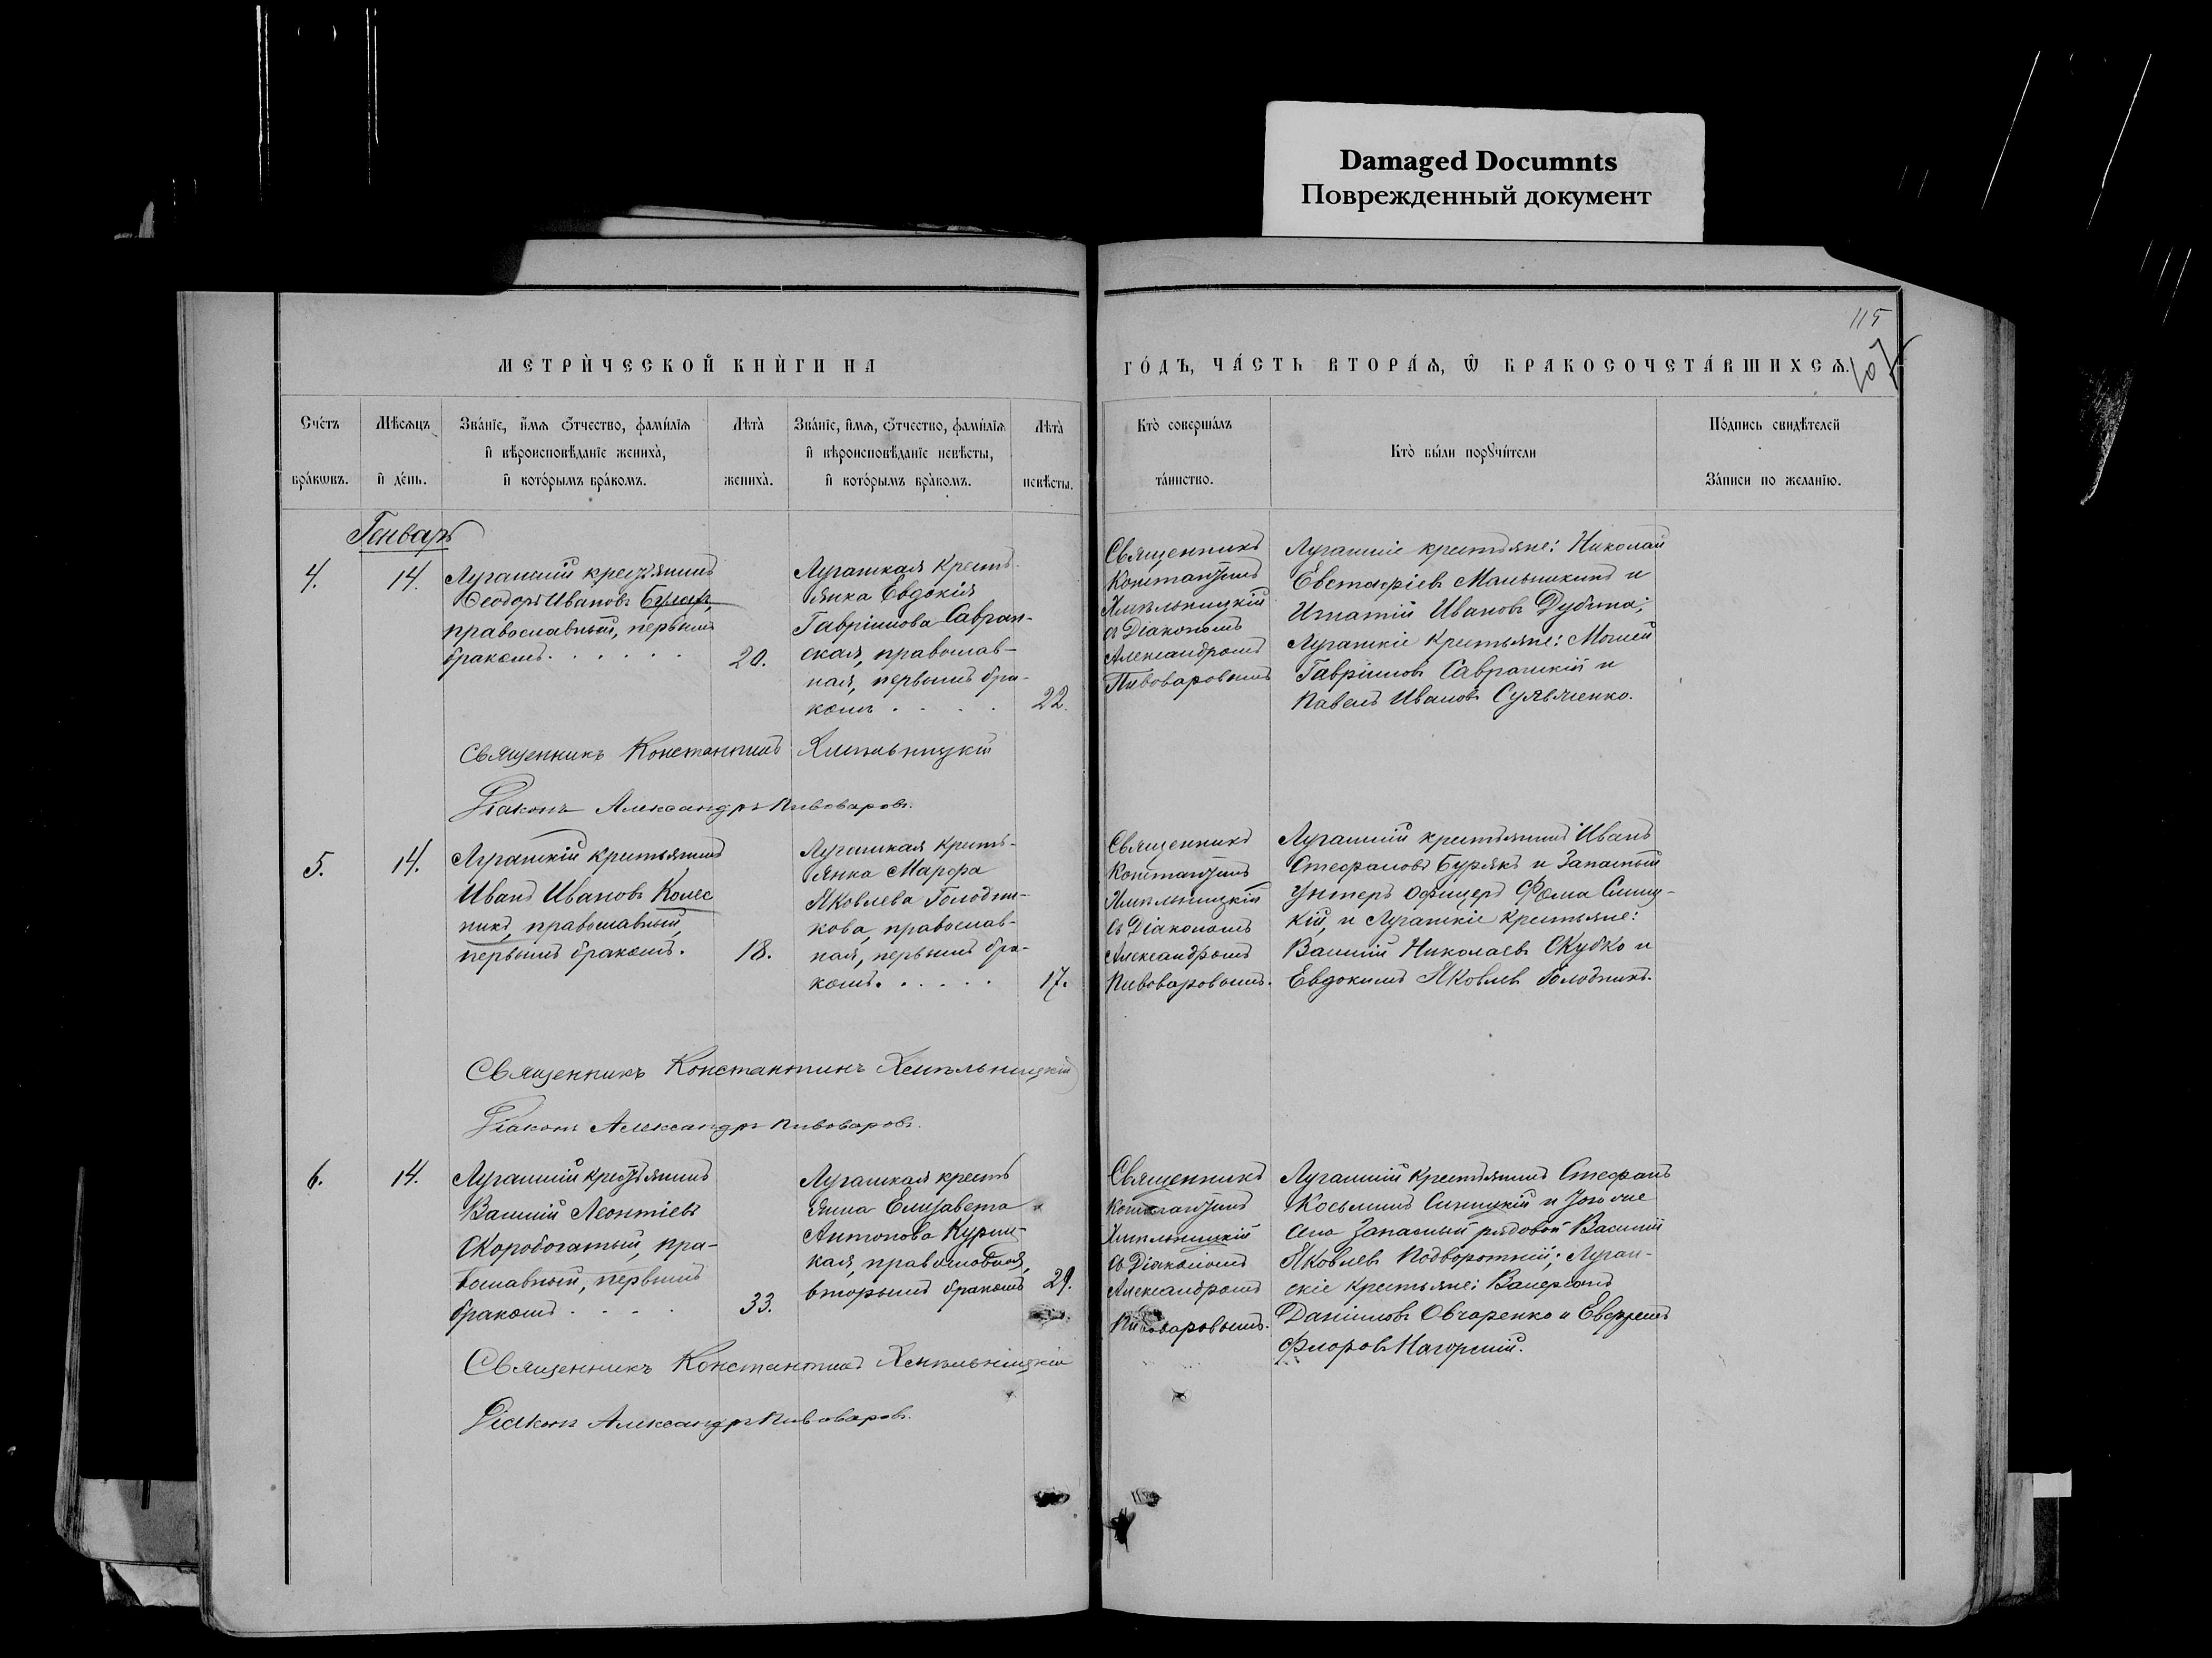 Damaged Documnts
Поврежденный документ
115
МЕТРИ́ЧЕСКОЙ КНИ́ГИ НА
ГО́ДЪ, ЧА́СТЬ ВТОРА́Ѧ, Ѿ БРАКОСОЧЕТА́ВШИХСѦ.
Сче́тъ
бра́кѡвъ.
Мѣ́сѧцъ
и҆ де́нь.
Зва́нїе, и҆́мѧ ѻ҆́тчество, фамі́лїѧ
и҆ вѣроисповѣ́данїе жениха̀,
и҆ кото́рымъ бра́комъ.
Лѣта̀
жениха̀.
Зва́нїе, и҆́мѧ, ѻ҆́тчество, фамі́лїѧ
и҆ вѣроисповѣ́данїе невѣ́сты,
и҆ кото́рымъ бра́комъ.
Лѣта̀
невѣ́сты.
Кто̀ соверша́лъ
та́инство.
Кто̀ бы́ли порꙋчи́тели
По́дпись свидѣ́телей
За́писи по жела́нїю.
Генварь
4.
14.
Луганскій крестьянинъ
Ѳеодоръ Ивановъ
православный, первымъ
бракомъ. . . . . .
20.
Луганская кресть-
янка Евдокія
Гавріилова Савран-
ская, православ-
ная, первымъ бра-
комъ . . . .
22.
Священникъ
Константинъ
Хмѣльницкій
съ Діакономъ
Александромъ
Пивоваровымъ
Луганскіе крестьяне: Николай
Евстафіевъ Мальникинъ и
Игнатій Ивановъ Дубина;
Луганскіе крестьяне: Моисей
Гавріиловъ Савранскій и
Павелъ Ивановъ
Священникъ Константинъ Хмѣльницкій
Діаконъ Александръ Пивоваровъ.
5.
14.
Луганскій крестьянинъ
Иванъ Ивановъ Колес
никъ, православный,
первымъ бракомъ.
18.
Луганская кресть-
янка Марфа
Яковлева Голодни-
кова, православ-
ная, первымъ бра-
комъ. . . . . .
17.
Священникъ
Константинъ
Хмѣльницкій
съ Діакономъ
Александромъ
Пивоваровымъ.
Луганскій крестьянинъ Иванъ
Стефановъ Бурякъ и Запасный
Унтеръ Офицеръ Фома Синиц-
кій, и Луганскіе крестьяне:
Василій Николаевъ Скубко и
Евдокимъ Яковлевъ Голодникъ.
Священникъ Константинъ Хмѣльницкій
Діаконъ Александръ Пивоваровъ.
6.
14.
Луганскій крестьянинъ
Василій Леонтіевъ
Скоробогатый, пра-
вославный, первымъ
бракомъ . . . .
33.
Луганская кресть
янка Елизавета
Антонова
кая, православная,
вторымъ бракомъ
29.
Священникъ
Константинъ
Хмѣльницкій
съ Діакономъ
Александромъ
Пивоваровымъ.
Луганскій крестьянинъ Стефанъ
Косьминъ Синицкій и того же
села Запасный рядовой Василій
Яковлевъ Подворотній; Луган-
скіе крестьяне:
Даніиловъ Овчаренко и Евфремъ
Флоровъ Нагорный.
Священникъ Константинъ Хмѣльницкій
Діаконъ Александръ Пивоваровъ.